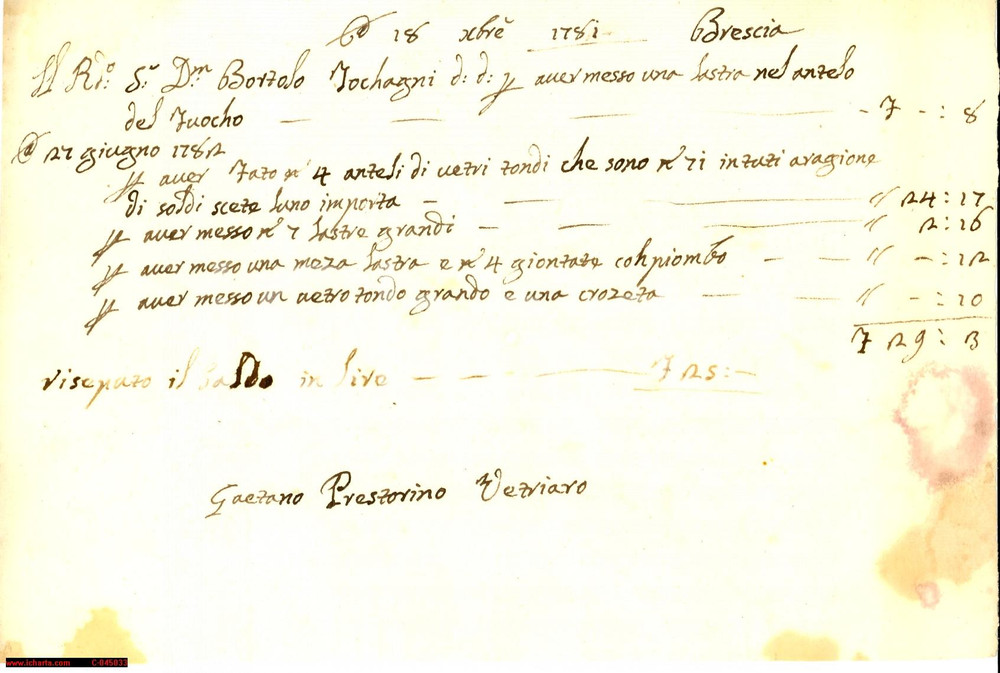 Ad 18 xbrẽ 1781 Brescia
Il Rd.o S.r D.m Bortolo Fochagni d: d: p aver messo una lastra nel antelo
del Fuocho — — — — 7 - : 8
Ad 27 giugno 1782
p aver Fato n 4 anteli di vetri tondi che sono n 71 in tuti aragione
di soldi scete luno importa — — — " 24 : 17
p aver messo n 7 lastre grandi — — — " 2 : 16
p aver messo una meza lastra e n 4 giontate cohpiombo — — " - : 12
p aver messo un vetro tondo grando e una crozeta — — " - : 10
7 29 : 3
riseputo il saldo in lire — — 7 25 : -
Gaetano Prestorino Vetriaro
www.icharta.com C-045033